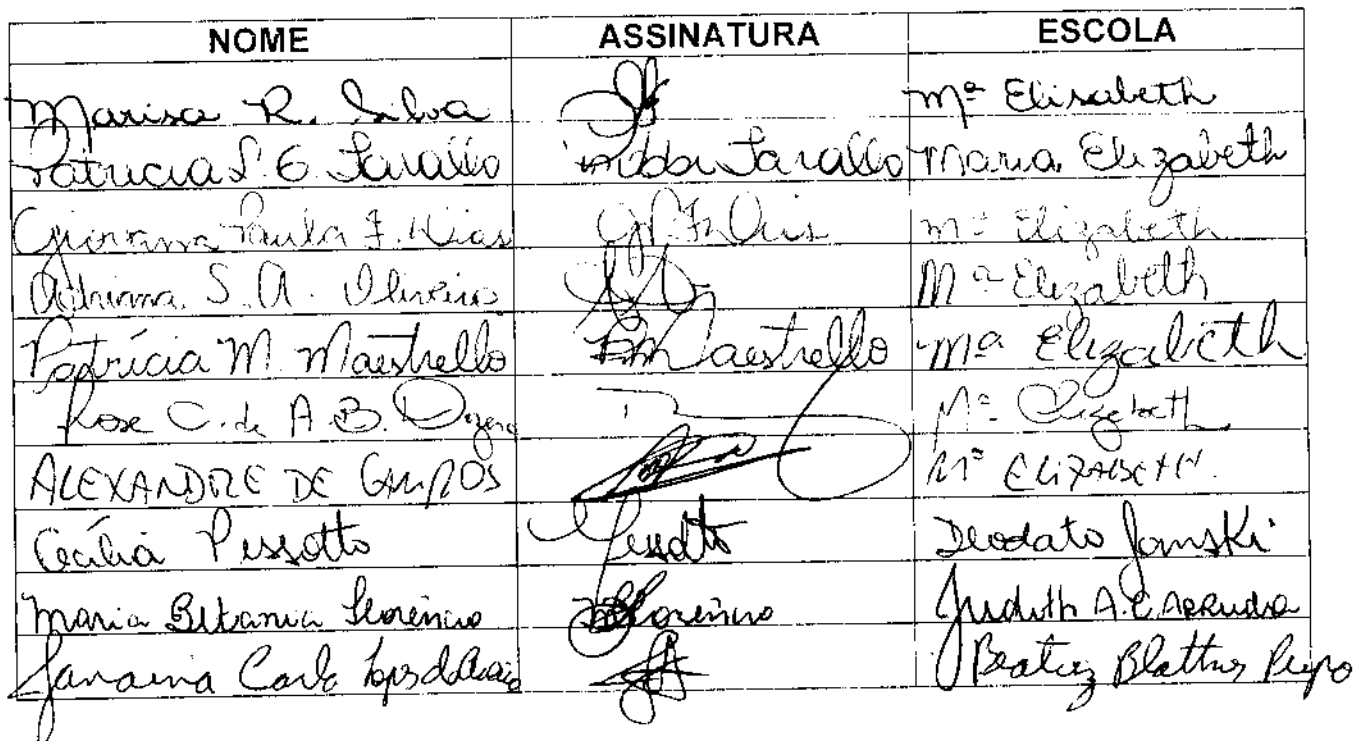 NOME ASSINATURA ESCOLA
Marisa R. Silva Mª Elisabeth
Patricia S. G. Savallo Savallo Maria Elizabeth
Giovanna Paula F. Dias Mª Elizabeth
Adriana S. A. Oliveira Mª Elizabeth
Patrícia M. Maestrello PMaestrello Mª Elizabeth
Rose C. de A. B. Mª Elizabeth
ALEXANDRE DE CAMPOS Mª ELIZABETH.
Cecília Pessotto Pessotto Deodato Janski
Maria Betania Florêncio Florêncio Judith A. C. ARRUDA
Janaina Carla Beatriz Blattner Pupo